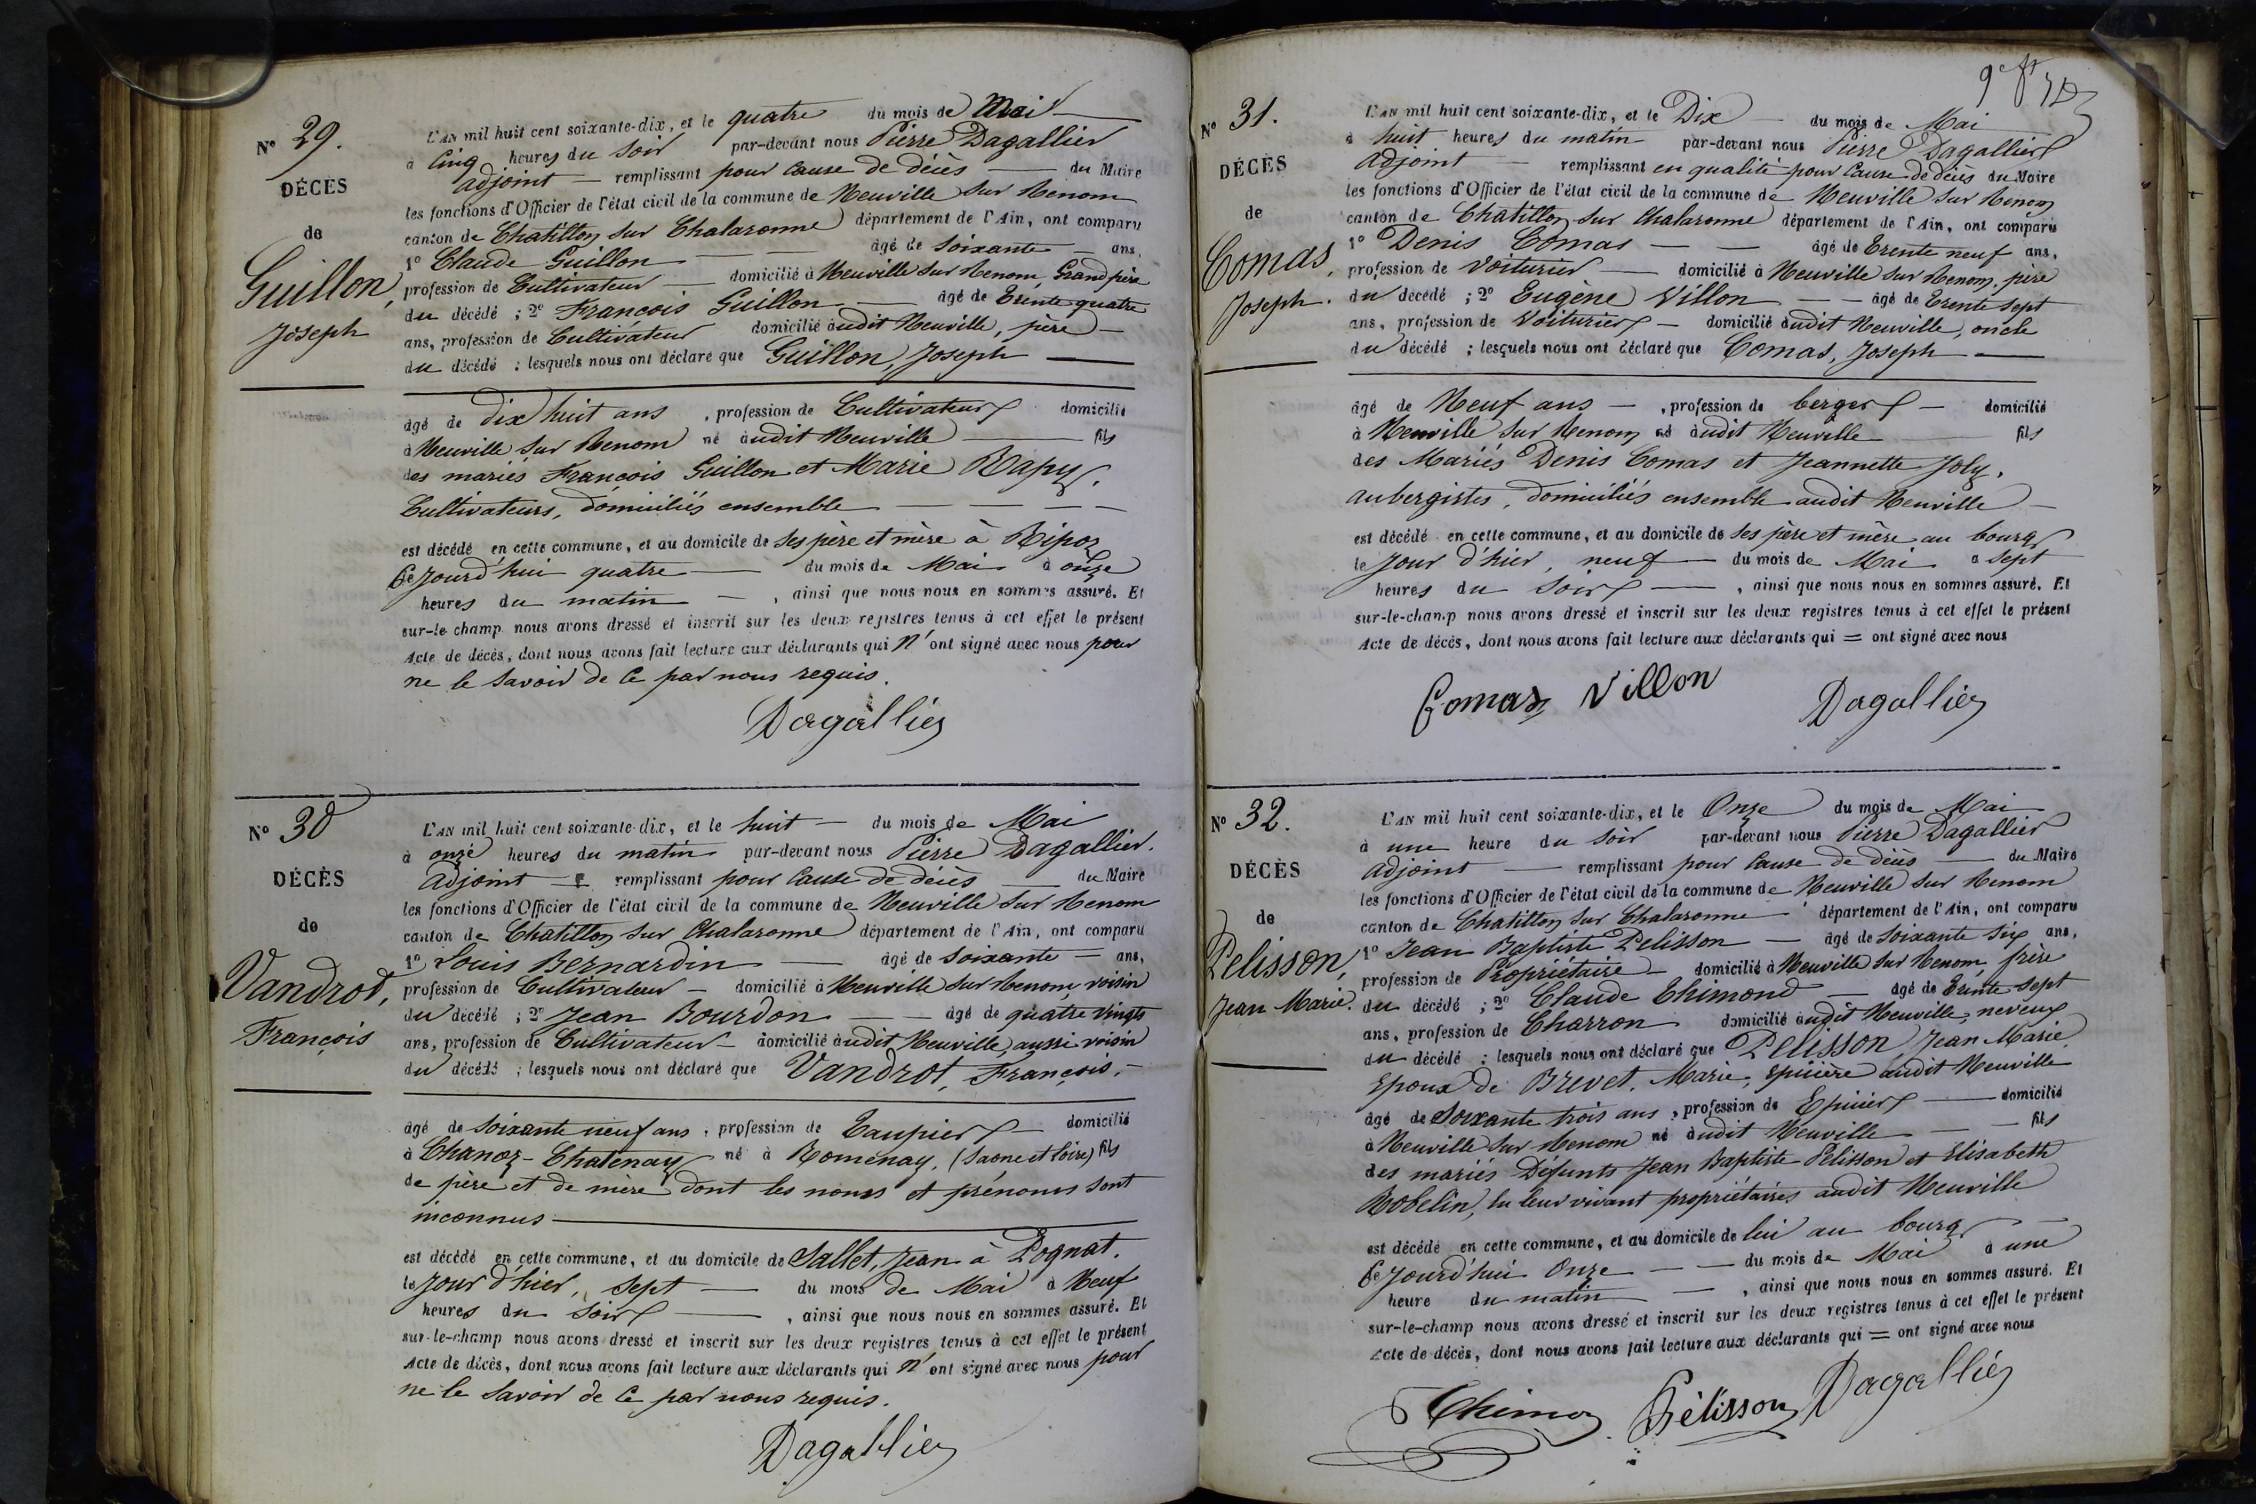 Nº 29.
DÉCÈS
de
Guillon,
Joseph
L'AN mil huit cent soixante-dix, et le quatre du mois de Mai
à Cinq heures du Soir par-devant nous Pierre Dagallier
adjoint — remplissant pour cause de décès — du Maire
les fonctions d'Officier de l'état civil de la commune de Neuville sur Renom
canton de Chatillon sur Chalaronne département de l'Ain, ont comparu
1º Claude Guillon — âgé de soixante — ans,
profession de Cultivateur — domicilié à Neuville sur Renom, Grand père
du décédé ; 2º François Guillon — âgé de Trente quatre
ans, profession de Cultivateur domicilié audit Neuville, père —
du décédé ; lesquels nous ont déclaré que Guillon, Joseph —
âgé de dix huit ans , profession de Cultivateur domicilié
à Neuville sur Renom né audit Neuville — fils
des mariés François Guillon et Marie Rapy,
Cultivateurs, domiciliés ensemble — — — —
est décédé en cette commune, et au domicile de ses père et mère à Ripoz
Ce jourd'hui quatre — du mois de Mai à onze
heures du matin — , ainsi que nous nous en sommes assuré. Et
sur-le-champ nous avons dressé et inscrit sur les deux registres tenus à cet effet le présent
Acte de décès, dont nous avons fait lecture aux déclarants qui n'ont signé avec nous pour
ne le savoir de ce par nous requis.
Dagallier
Nº 30
DÉCÈS
de
Vandrot,
François
L'AN mil huit cent soixante-dix, et le huit — du mois de Mai
à onze heures du matin par-devant nous Pierre Dagallier.
adjoint — remplissant pour cause de décès — du Maire
les fonctions d'Officier de l'état civil de la commune de Neuville sur Renom
canton de Chatillon sur Chalaronne département de l'Ain, ont comparu
1º Louis Bernardin — âgé de soixante — ans,
profession de Cultivateur — domicilié à Neuville sur Renom, voisin
du décédé ; 2º Jean Bourdon — — âgé de quatre vingts
ans, profession de Cultivateur — domicilié audit Neuville, aussi voisin
du décédé ; lesquels nous ont déclaré que Vandrot, François. —
âgé de soixante neuf ans , profession de Taupier — domicilié
à Chanoz-Chatenay né à Romenay, (Saone et Loire) fils
de père et de mère dont les noms et prénoms sont
inconnus —
est décédé en cette commune, et au domicile de Sallet, Jean à Pognat.
le jour d'hier, sept — du mois de Mai à Neuf
heures du soir — , ainsi que nous nous en sommes assuré. Et
sur-le-champ nous avons dressé et inscrit sur les deux registres tenus à cet effet le présent
Acte de décès, dont nous avons fait lecture aux déclarants qui n'ont signé avec nous pour
ne le savoir de ce par nous requis.
Dagallier
Nº 31.
DÉCÈS
de
Comas,
Joseph.
L'AN mil huit cent soixante-dix, et le Dix — du mois de Mai
à huit heures du matin par-devant nous Pierre Dagallier
adjoint — remplissant en qualité pour cause de décès du Maire
les fonctions d'Officier de l'état civil de la commune de Neuville sur Renom
canton de Chatillon sur Chalaronne département de l'Ain, ont comparu
1º Denis Comas — — âgé de Trente neuf ans,
profession de voiturier — domicilié à Neuville sur Renom, père
du décédé ; 2º Eugène Villon — — âgé de Trente sept
ans, profession de Voiturier — domicilié audit Neuville, oncle
du décédé ; lesquels nous ont déclaré que Comas, Joseph —
âgé de Neuf ans — , profession de berger — domicilié
à Neuville sur Renom né audit Neuville — fils
des Mariés Denis Comas et Jeannette Joly,
aubergistes, domiciliés ensemble audit Neuville —
est décédé en cette commune, et au domicile de ses père et mère au bourg
le jour d'hier, neuf — du mois de Mai à sept
heures du soir — , ainsi que nous nous en sommes assuré. Et
sur-le-champ nous avons dressé et inscrit sur les deux registres tenus à cet effet le présent
Acte de décès, dont nous avons fait lecture aux déclarants qui = ont signé avec nous
Comas Villon Dagallier
Nº 32.
DÉCÈS
de
Pelisson,
Jean Marie.
L'AN mil huit cent soixante-dix, et le Onze du mois de Mai
à une heure du soir par-devant nous Pierre Dagallier
adjoint — remplissant pour cause de décès — du Maire
les fonctions d'Officier de l'état civil de la commune de Neuville sur Renom
canton de Chatillon sur Chalaronne département de l'Ain, ont comparu
1º Jean Baptiste Pelisson — âgé de soixante six ans,
profession de Propriétaire — domicilié à Neuville sur Renom, frère
du décédé ; 2º Claude Thimond — âgé de Trente sept
ans, profession de Charron domicilié audit Neuville, neveux
du décédé ; lesquels nous ont déclaré que Pelisson Jean Marie
Epoux de Brevet, Marie, epicière audit Neuville
âgé de Soixante trois ans , profession de Epicier — domicilié
à Neuville sur Renom né audit Neuville — — fils
des mariés Défunts Jean Baptiste Pelisson et Elisabeth
Robelin, en leur vivant propriétaires audit Neuville
est décédé en cette commune, et au domicile de lui au bourg
Ce jourd'hui Onze — — du mois de Mai à une
heure du matin — , ainsi que nous nous en sommes assuré. Et
sur-le-champ nous avons dressé et inscrit sur les deux registres tenus à cet effet le présent
Acte de décès, dont nous avons fait lecture aux déclarants qui = ont signé avec nous
Pélisson Dagallier